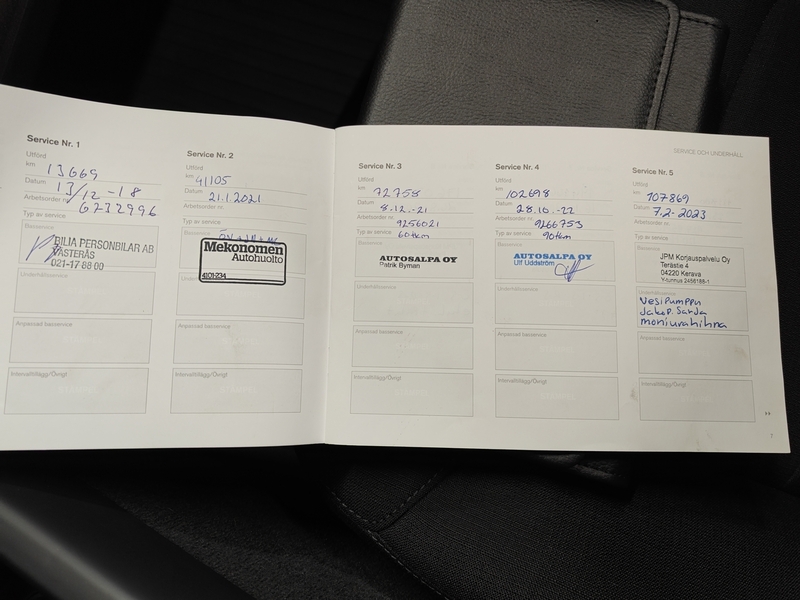 SERVICE OCH UNDERHÅLL
Service Nr. 1
Utförd
km 13669
Datum 13/12 -18
Arbetsorder nr. 6732996
Typ av service
BILIA PERSONBILAR AB
VÄSTERÅS
021-17 88 00
Underhållsservice
Anpassad basservice
Intervalltillägg/Övrigt
Service Nr. 2
Utförd
km 41105
Datum 21.1.2021
Arbetsorder nr.
Typ av service
Mekonomen
Autohuolto
4101-234
Anpassad basservice
Intervalltillägg/Övrigt
Service Nr. 3
Utförd
km 72758
Datum 8.12.-21
Arbetsorder nr. 9256021
Typ av service 60tkm
Basservice
AUTOSALPA OY
Patrik Byman
Underhållsservice
Anpassad basservice
Intervalltillägg/Övrigt
Service Nr. 4
Utförd
km 102698
Datum 28.10.-22
Arbetsorder nr. 9266753
Typ av service 90tkm
AUTOSALPA OY
Ulf Uddström
Underhållsservice
Anpassad basservice
Intervalltillägg/Övrigt
Service Nr. 5
Utförd
km 107869
Datum 7.2-2023
Arbetsorder nr.
Typ av service
Basservice
JPM Korjauspalvelu Oy
Terästie 4
04220 Kerava
Y-tunnus 2486188-1
Underhållsservice
Vesipumppu
Jakop. Sarja
moniurahihna
Anpassad basservice
Intervalltillägg/Övrigt
7